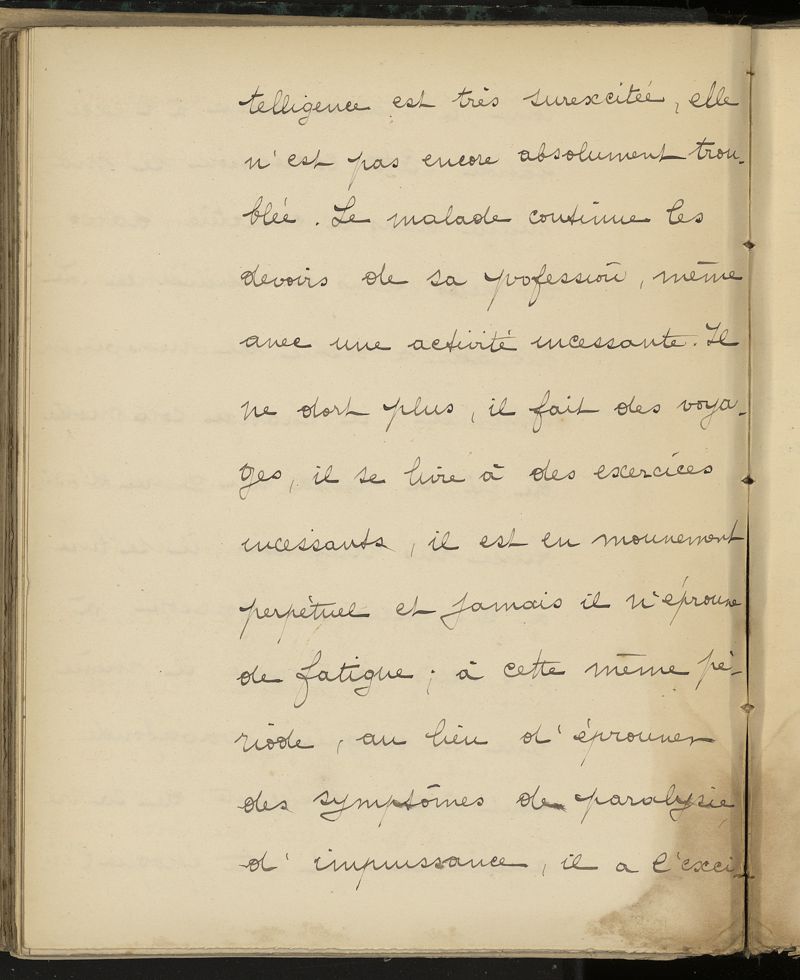 telligence est très surexcitéé, elle
n'est pas encore absolument trou-
blée. Le malade continue les
devoirs de sa profession, même
avec une activité incessante. Il
ne dort plus, il fait des voya-
ges, il se livre à des exercices
incessants, il est en mouvement
perpétuel et jamais il n'éprouve
de fatigue; à cette même pé-
riode, au lieu d'éprouver
des symptômes de paralysie,
d'impuissance, il a l'exci-